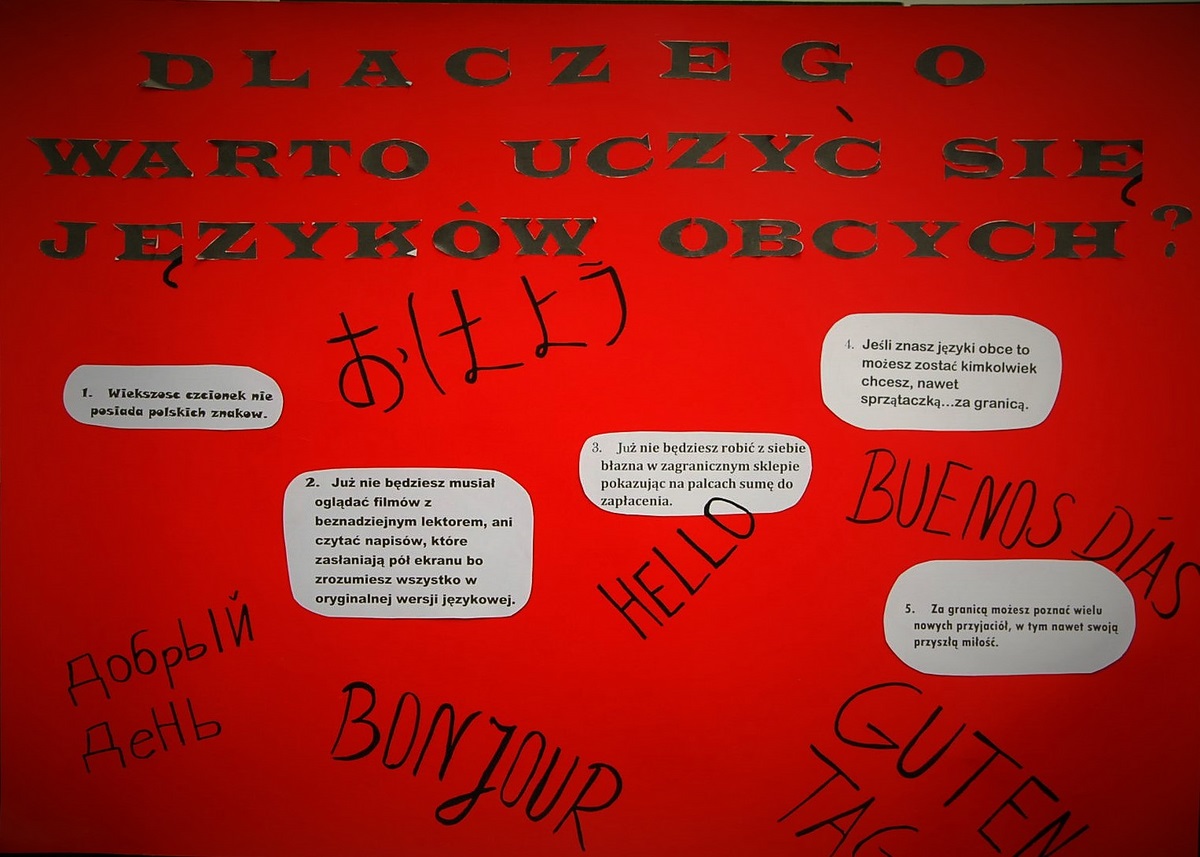 DLACZEGO
WARTO UCZYĆ SIĘ
JĘZYKÓW OBCYCH?
おはよう
1. Wiekszosc czcionek nie
posiada polskich znakow.
2. Już nie będziesz musiał
oglądać filmów z
beznadziejnym lektorem, ani
czytać napisów, które
zasłaniają pół ekranu bo
zrozumiesz wszystko w
oryginalnej wersji językowej.
3. Już nie będziesz robić z siebie
błazna w zagranicznym sklepie
pokazując na palcach sumę do
zapłacenia.
4. Jeśli znasz języki obce to
możesz zostać kimkolwiek
chcesz, nawet
sprzątaczką...za granicą.
BUENOS DÍAS
HELLO
5. Za granicą możesz poznać wielu
nowych przyjaciół, w tym nawet swoją
przyszłą miłość.
Добрый
День
BONJOUR
GUTEN
TAG